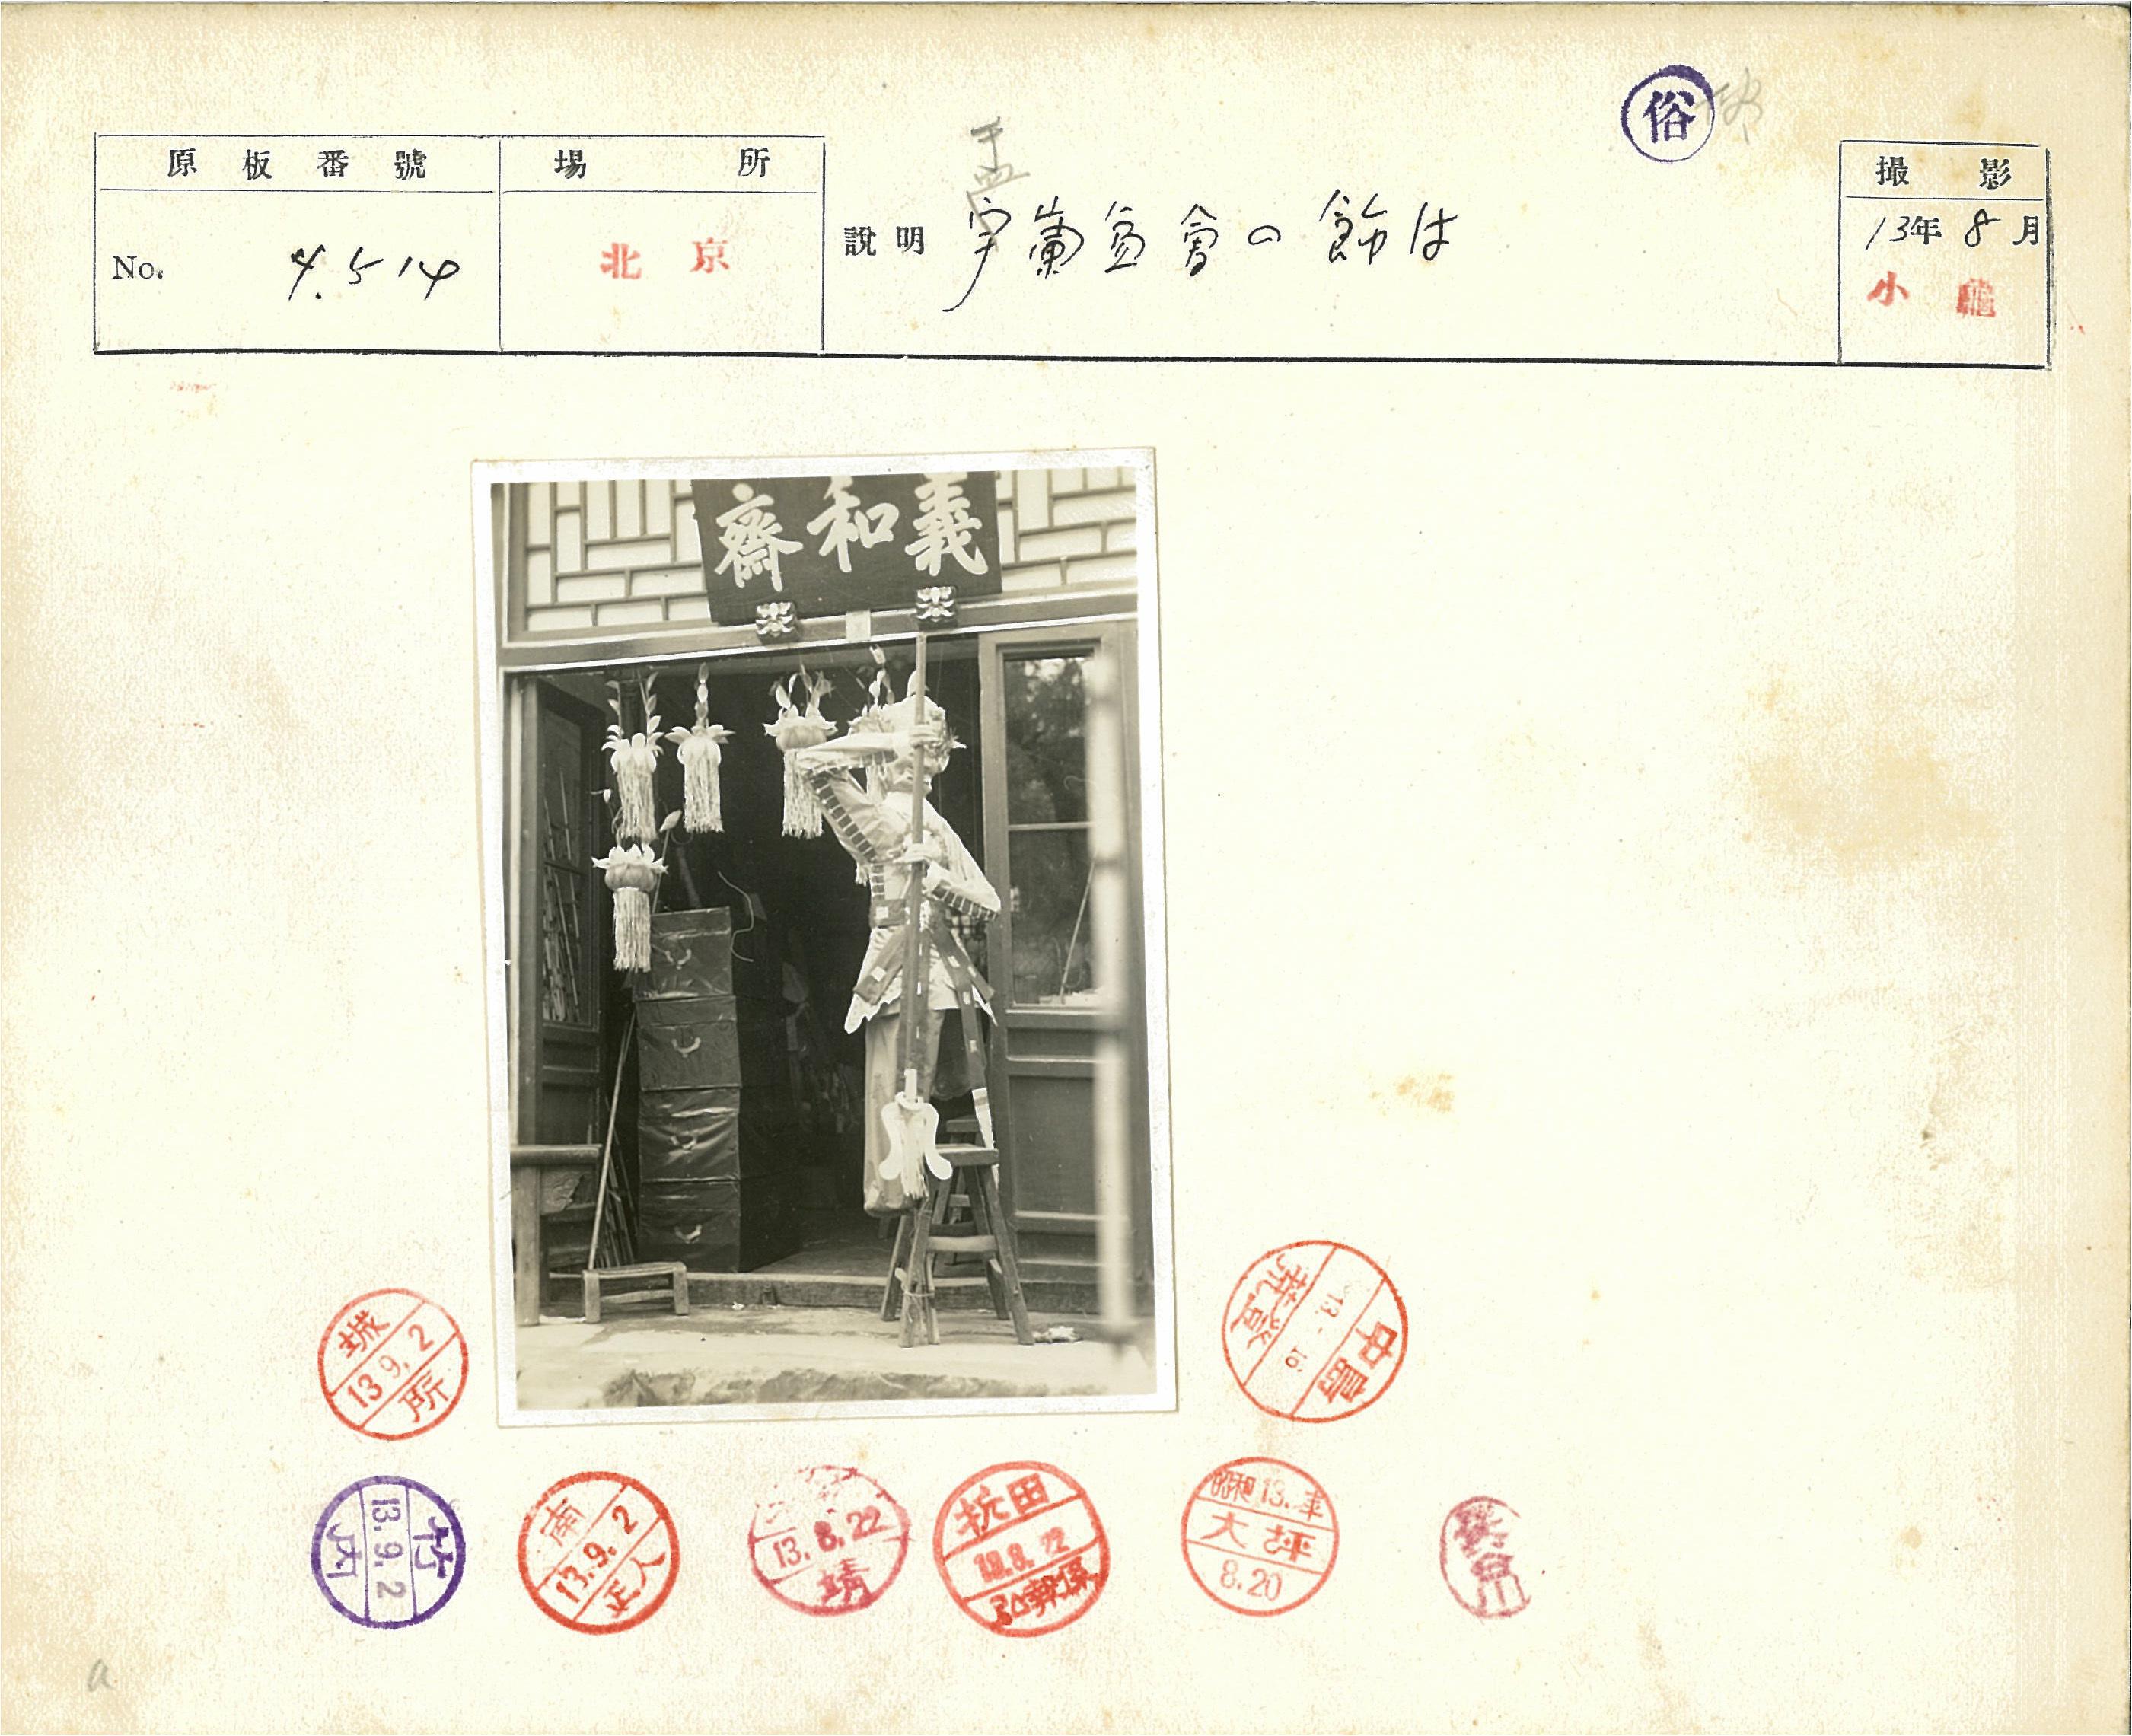 俗
原板番號
No. 4.514
場所
北京
盂
説明 宇蘭盆會の飾は
撮影
13年8月
小
義和齋
城
13.9.2
所
中島
13.
竹
13.9.2
内
南
13.9.2
正人
13.8.22
靖
田
弘報係
昭和13.年
大坪
8.20
a